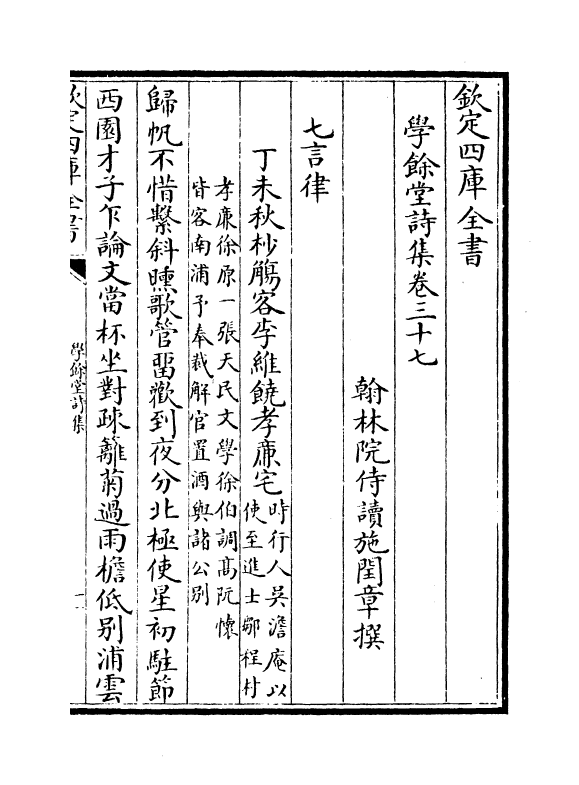 欽定四庫全書
學餘堂詩集卷三十七
翰林院侍讀施閏章撰
七言律
丁未秋杪觴客李維饒孝廉宅
時行人吳澹庵以
使至進士鄒程村
孝廉徐原一張天民文學徐伯調髙阮懷
皆客南浦予奉裁解官置酒與諸公别
歸帆不惜繫斜曛歌管畱歡到夜分北極使星初駐節
西園才子乍論文當杯坐對疎籬菊過雨檐低别浦雲
欽定四庫全書
學餘堂詩集
一